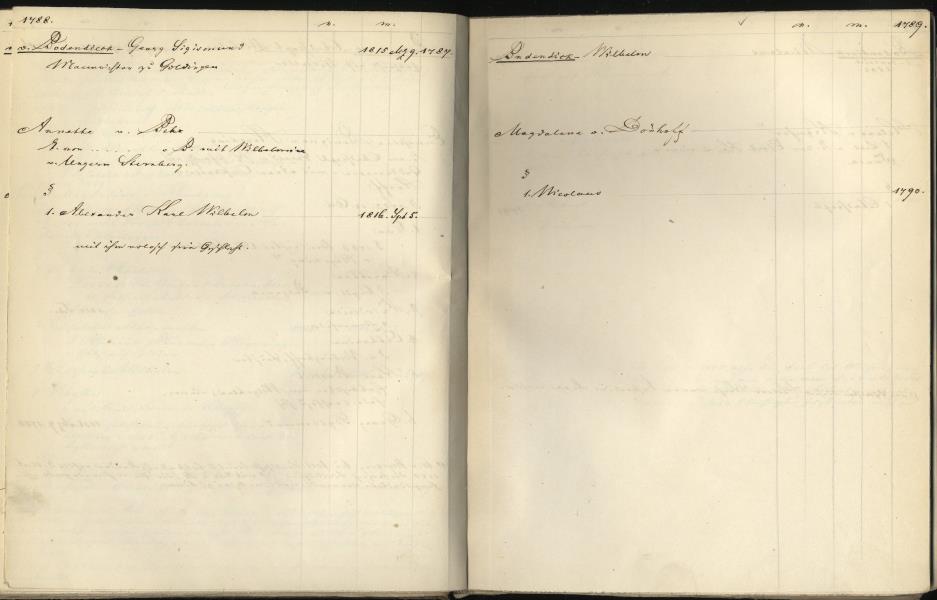 1788. n. m.
v. Bodendieck - Georg Sigismund 1815 Aug 9. 1787.
Mannrichter zu Goldingen
Annette v. Behr
2. von ..... v. B. mit Wilhelmine
v. Ungern Sternberg.
§
1. Alexander Karl Wilhelm 1816. Spt 5.
mit ihm erlosch sein Geschlecht.
n. m. 1789.
Bodendieck - Wilhelm
Magdalena v. Dönhoff
§
1. Nicolaus 1790.